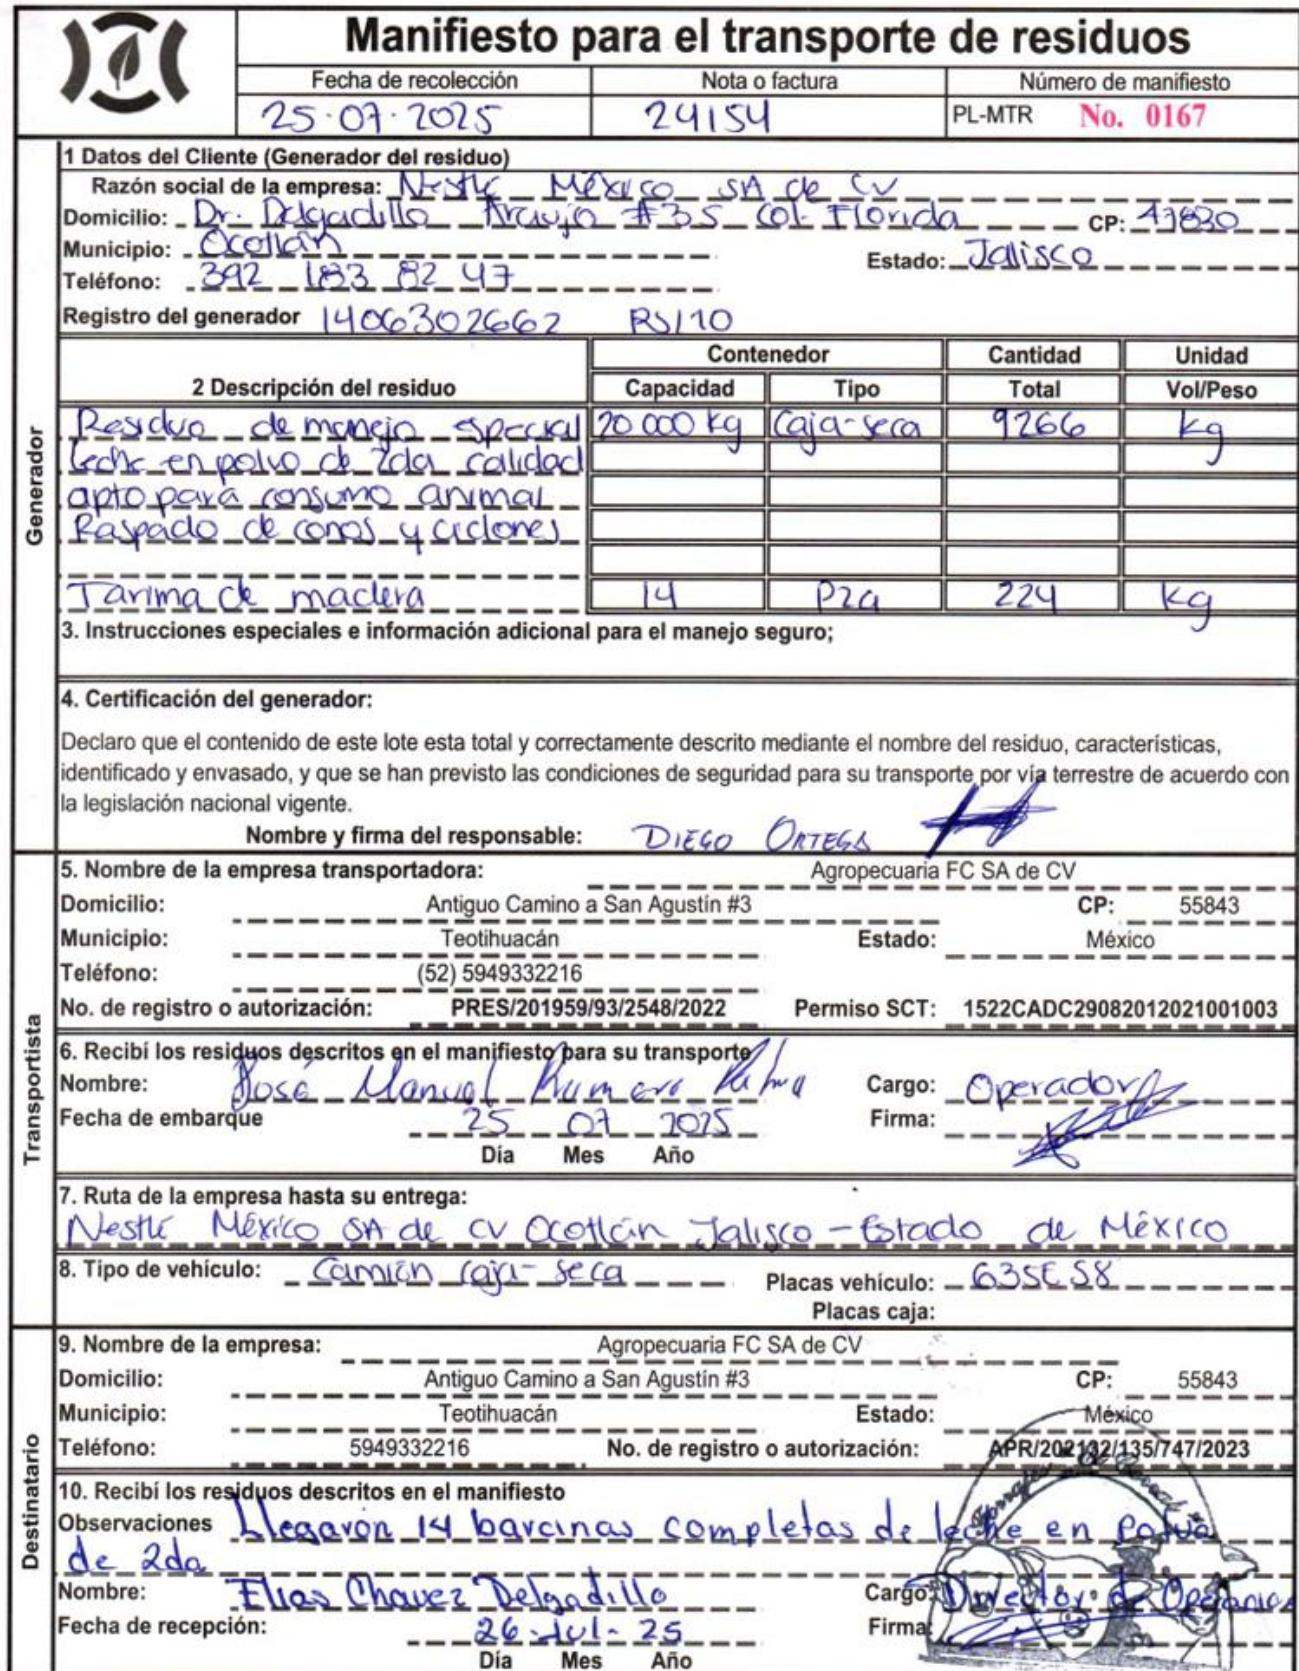 Manifiesto para el transporte de residuos
Fecha de recolección Nota o factura Número de manifiesto
25·07·2025 24154 PL-MTR No. 0167
1 Datos del Cliente (Generador del residuo)
Razón social de la empresa: Nestlé México SA de CV
Domicilio: Dr. Delgadillo Araujo #35 Col. Florida CP: 47830
Municipio: Ocotlán
Estado: Jalisco
Teléfono: 392 183 82 47
Registro del generador 1406302662 RS/10
Contenedor Cantidad Unidad
2 Descripción del residuo Capacidad Tipo Total Vol/Peso
Residuo de manejo especial 20 000 kg Caja-seca 9266 kg
leche en polvo de 2da calidad
apto para consumo animal
Raspado de conos y ciclones
Tarima de madera 14 Pza 224 kg
3. Instrucciones especiales e información adicional para el manejo seguro;
4. Certificación del generador:
Declaro que el contenido de este lote esta total y correctamente descrito mediante el nombre del residuo, características,
identificado y envasado, y que se han previsto las condiciones de seguridad para su transporte por vía terrestre de acuerdo con
la legislación nacional vigente.
Nombre y firma del responsable: DIEGO ORTEGA
Generador
5. Nombre de la empresa transportadora: Agropecuaria FC SA de CV
Domicilio: Antiguo Camino a San Agustín #3 CP: 55843
Municipio: Teotihuacán Estado: México
Teléfono: (52) 5949332216
No. de registro o autorización: PRES/201959/93/2548/2022 Permiso SCT: 1522CADC29082012021001003
6. Recibí los residuos descritos en el manifiesto para su transporte
Nombre: José Manuel Cargo: Operador
Fecha de embarque 25 07 2025 Firma:
Día Mes Año
7. Ruta de la empresa hasta su entrega:
Nestlé México SA de CV Ocotlán Jalisco - Estado de México
8. Tipo de vehículo: Camión caja-seca Placas vehículo: 635ES8
Placas caja:
Transportista
9. Nombre de la empresa: Agropecuaria FC SA de CV
Domicilio: Antiguo Camino a San Agustín #3 CP: 55843
Municipio: Teotihuacán Estado: México
Teléfono: 5949332216 No. de registro o autorización: APR/202132/135/747/2023
10. Recibí los residuos descritos en el manifiesto
Observaciones Llegarón 14 barcinas completas de leche en Polvo
de 2da
Nombre: Elias Chavez Delgadillo Cargo: Director de
Fecha de recepción: 26-Jul-25 Firma:
Día Mes Año
Destinatario